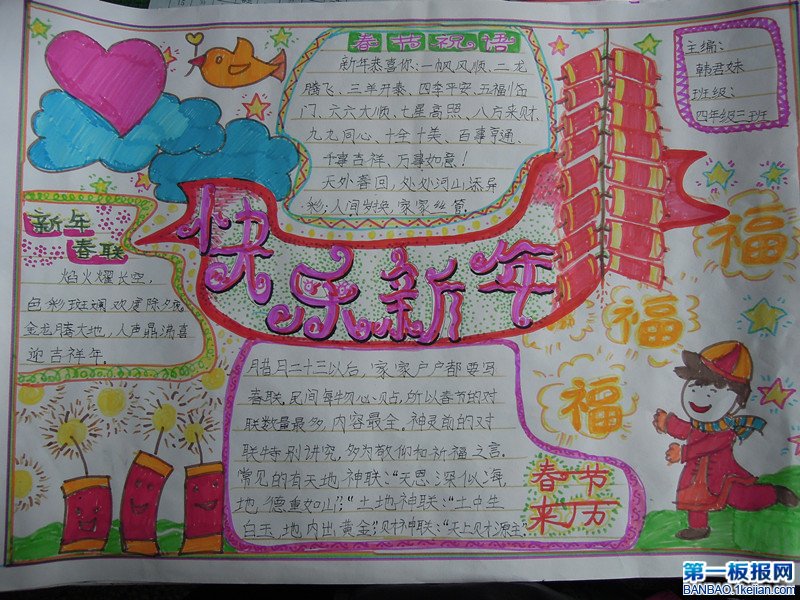 春节祝语
新年恭喜你:一帆风顺、二龙
腾飞、三羊开泰、四季平安、五福临
门、六六大顺、七星高照、八方来财、
九九同心、十全十美、百事亨通、
千事吉祥、万事如意!
天外春回,处处河山添异
彩;人间岁换,家家丝管
主编:
韩君妹
班级:
四年级三班
新年
春联
焰火耀长空,
色彩斑斓欢度除夕夜
金龙腾大地,人声鼎沸喜
迎吉祥年。
快乐新年
福
福
福
腊月二十三以后,家家户户都要写
春联,民间每物心贴,所以春节的对
联数量最多,内容最全。神灵前的对
联特别讲究,多为敬仰和祈福之言.
常见的有天地神联:"天恩深似海
地德重如山;"土地神联:"土中生
白玉,地内出黄金;"财神联:"天上财源主
春节
来历
第一板报网
BANBAO.1kejian.com